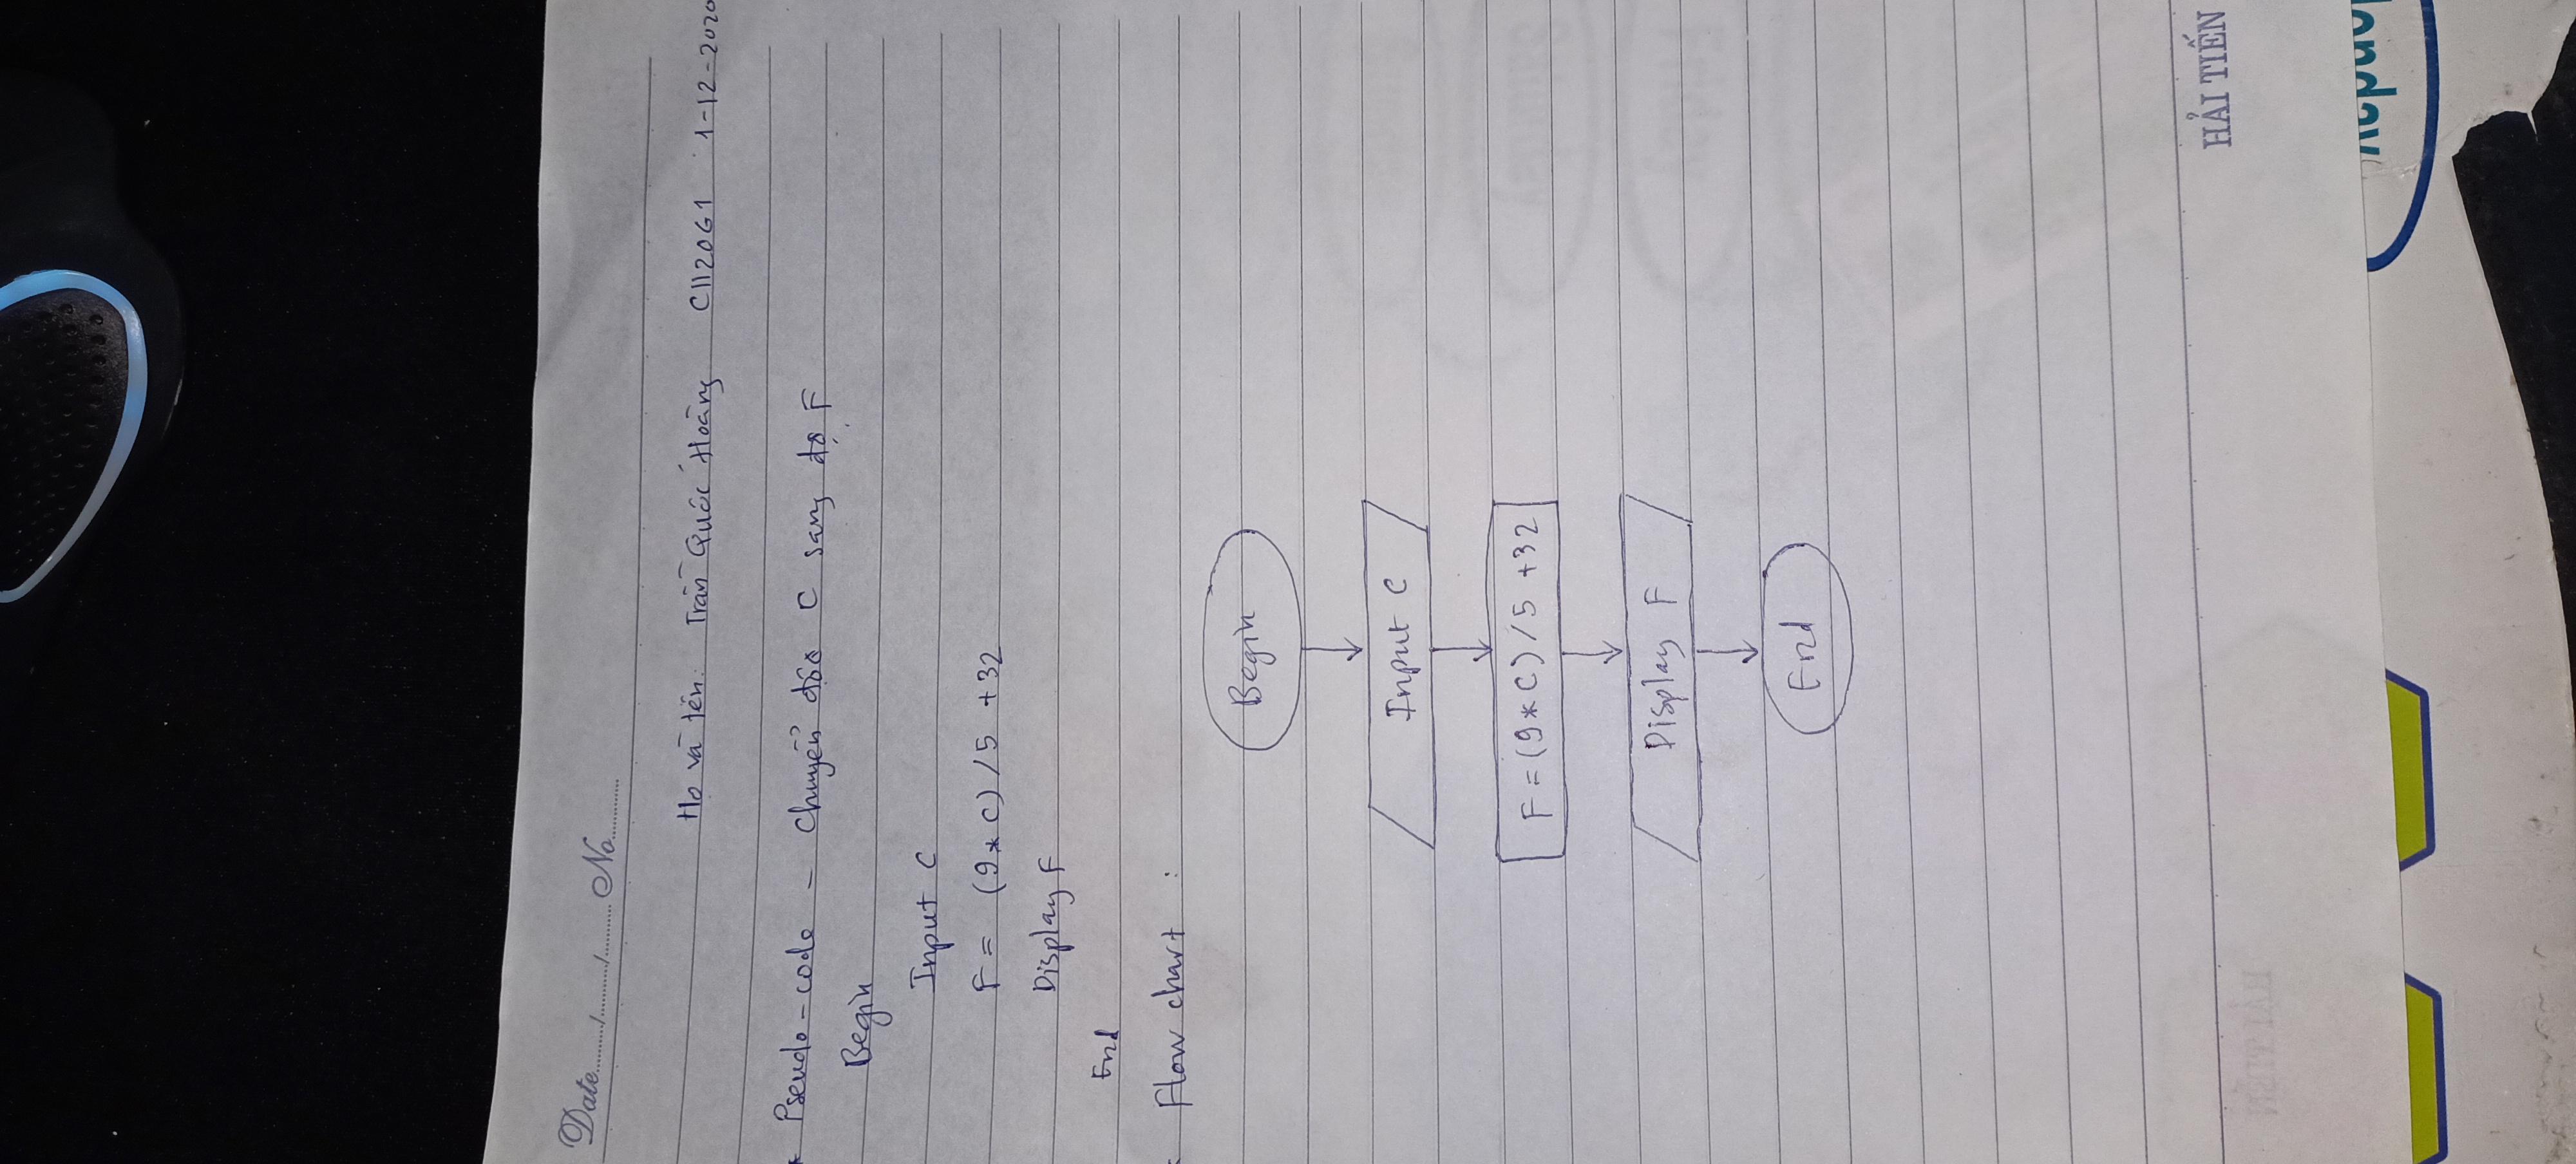 Date........./.........../........... No............
Họ và tên: Trần Quốc Hoàng C1120G1 1-12-2020
* Pseudo-code - Chuyển độ C sang độ F
Begin
Input C
F = (9*C)/5 +32
Display F
End
Flow chart :
Begin
Input C
F=(9*C)/5 +32
Display F
End
HẢI TIẾN